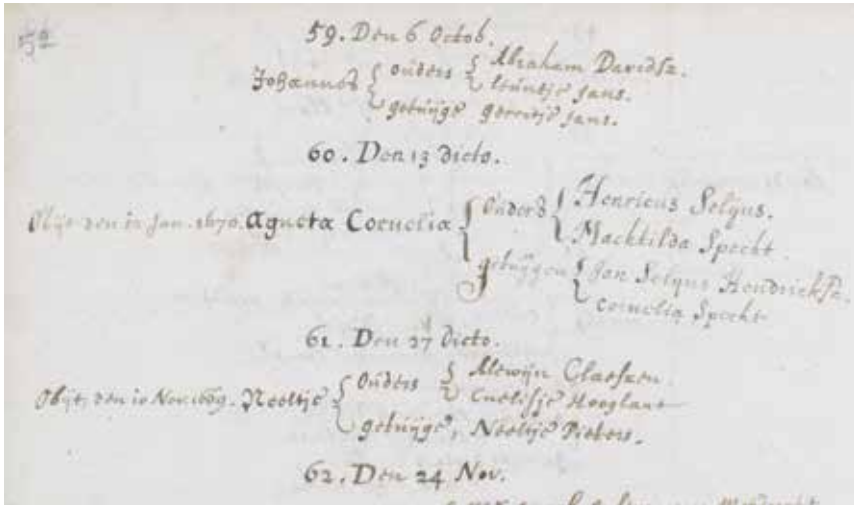 52
59. Den 6 Octob.
Johannes ouders Abraham Davidsz.
Leuntje Jans.
getuijge gerritje Jans.
60. Den 13 dicto.
Obijt den 10 Jan. 1670. Agneta Cornelia Ouders Henricus Selyns.
Machtilda Specht.
getuijgen Jan Selyns Hendricksz.
Cornelia Specht
61. Den 27 dicto.
Obijt, den 10 Nov. 1669. Neeltje Ouders Alewijn Claessen.
Hooglant
getuijge, Neeltje Pieters.
62. Den 24 Nov.